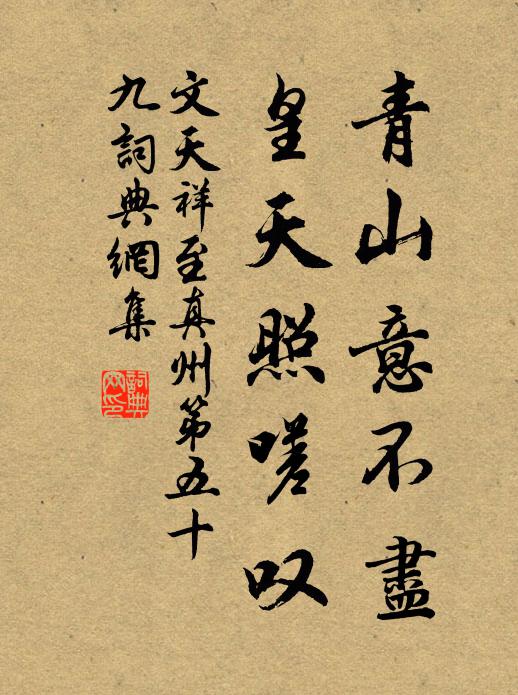 青山意不盡
皇天照嗟叹
文天祥至真州第五十
九詞典網集
詞典
网印